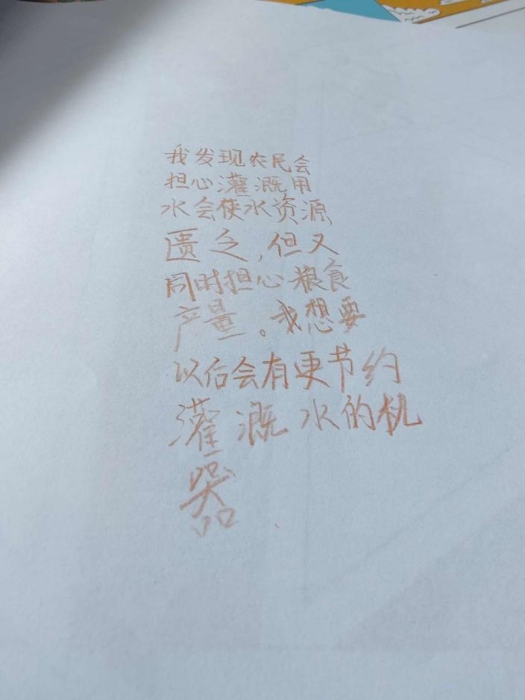 我发现农民会
担心灌溉用
水会使水资源
匮乏,但又
同时担心粮食
产量。我想要
以后会有更节约
灌溉水的机
器